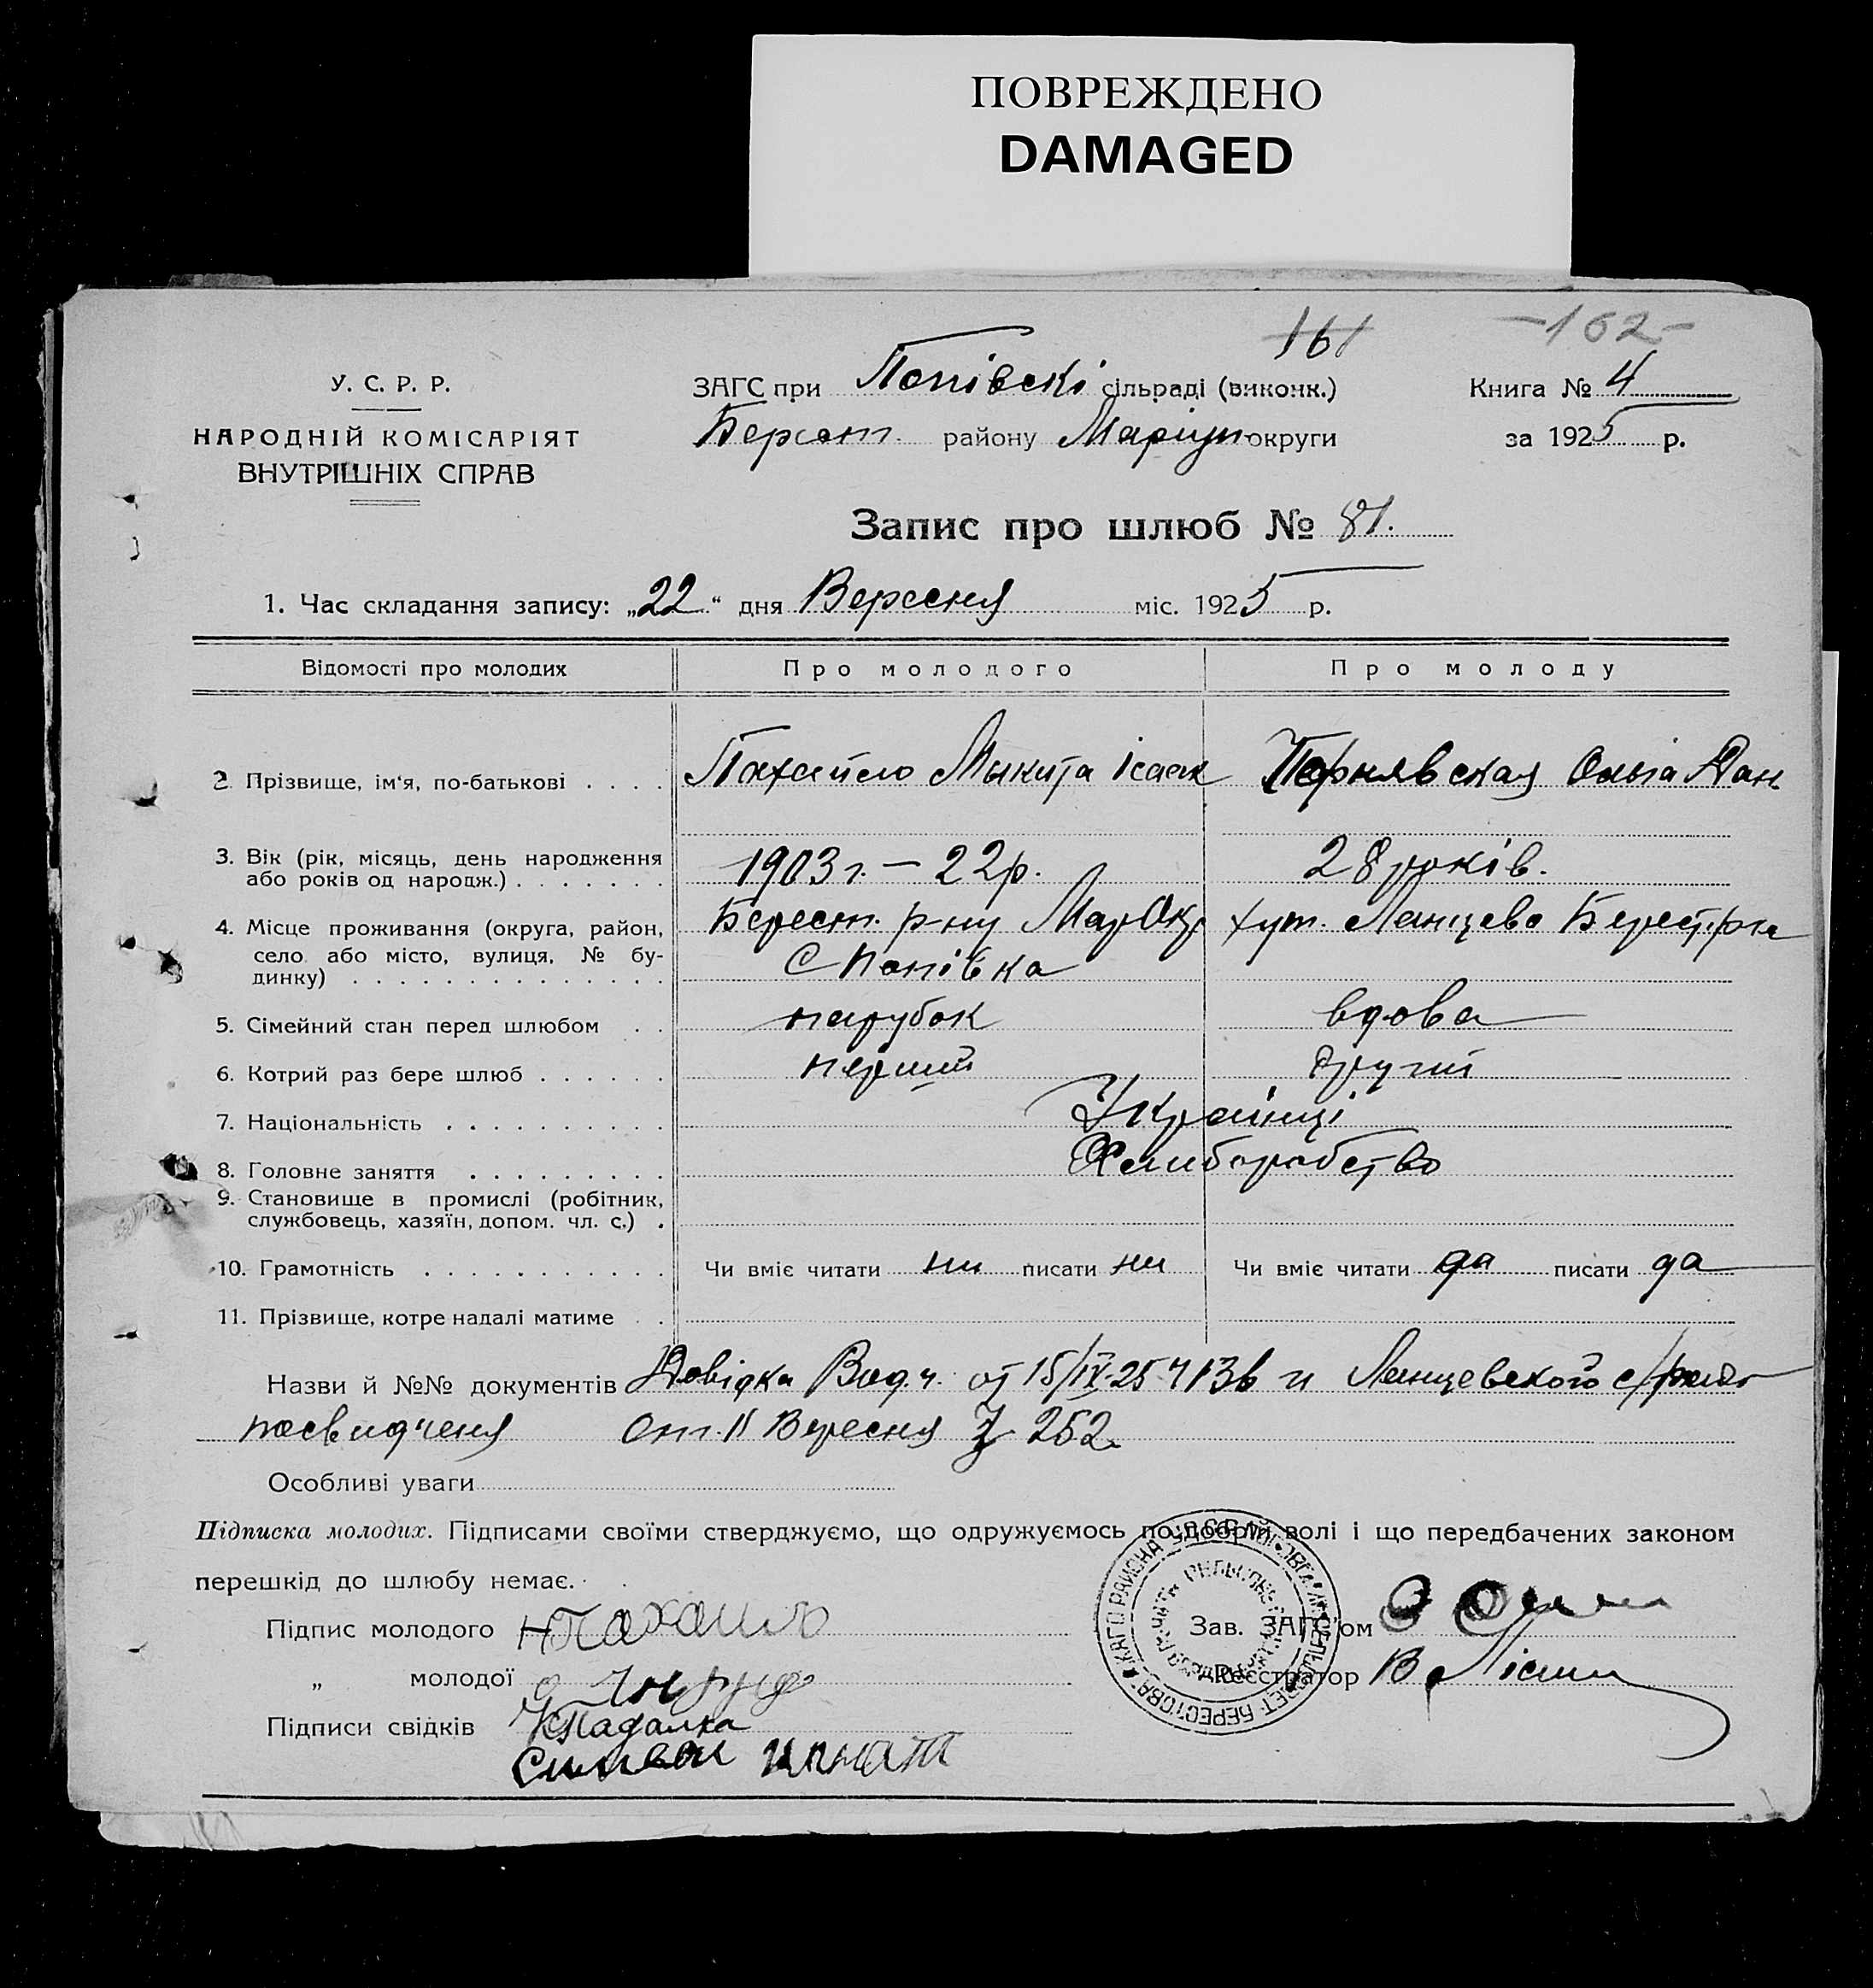 ПОВРЕЖДЕНО
DAMAGED
161
-162-
У. С. Р. Р.
НАРОДНІЙ КОМІСАРІЯТ
ВНУТРІШНІХ СПРАВ
ЗАГС при Попівскі сільраді (виконк.)
Берест. району Маріуп округи
Книга № 4
за 1925 р.
Запис про шлюб № 81.
1. Час складання запису: „22“ дня Вересня міс. 1925 р.
Відомості про молодих Про молодого Про молоду
2 Прізвище, ім‘я, по-батькові . . . . Пахайло Мыкита Ісаак Ольга Дан.
3. Вік (рік, місяць, день народження
або років од народж.) . . . . . . . 1903 г. – 22 р. 28 років.
4. Місце проживання (округа, район,
село або місто, вулиця, № бу-
динку) . . . . . . . . . . . . . .
Берест. р-ну Мар Окр хут. Ланцево Берест. р-на
С Попівка
5. Сімейний стан перед шлюбом . . парубок вдова
6. Котрий раз бере шлюб . . . . . . перший другий
7. Національність . . . . . . . . . . Українці
8. Головне заняття . . . . . . . . . Хлиборобство
9. Становище в промислі (робітник,
службовець, хазяїн, допом. чл. с.) .
10. Грамотність . . . . . . . . . . . Чи вміє читати ни писати ни Чи вміє читати да писати да
11. Прізвище, котре надалі матиме . .
Назви й №№ документів Довідка от 15/IX-25 и Ланцевского
посвидченя от. 11 Вересня 252
Особливі уваги
Підписка молодих. Підписами своїми стверджуємо, що одружуємось по добрій волі і що передбачених законом
перешкід до шлюбу немає.
Підпис молодого НПахаило
„ молодої
Підписи свідків
Зав. ЗАГС'ом
Реєстратор